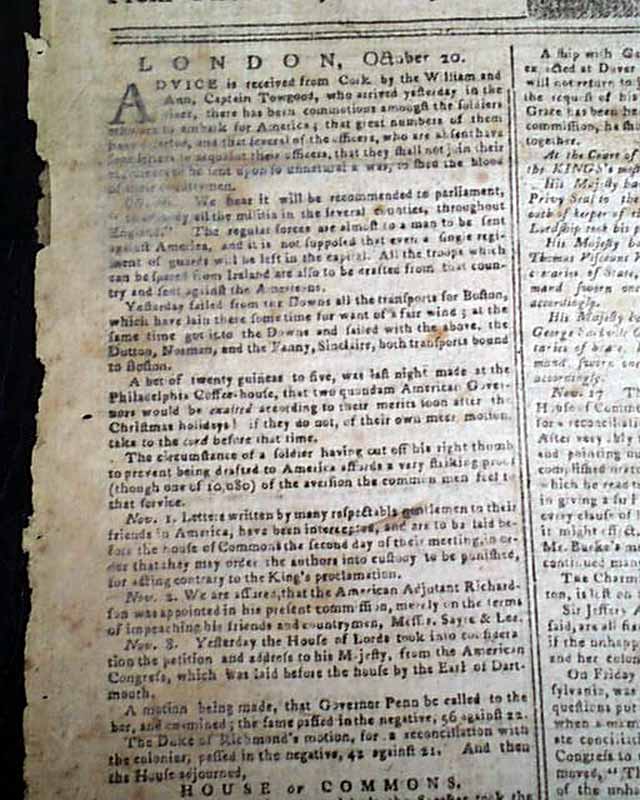 LONDON, October 20.
ADVICE is received from Cork by the William and
Ann, Captain Towgood, who arrived yesterday in the
river, there has been commotions amongst the soldiers
to embark for America; that great numbers of them
have deserted, and that several of the officers, who are absent have
sent letters to acquaint their officers, that they shall not join their
sent upon so unnatural a war, to shed the blood
of their countrymen.
We hear it will be recommended to parliament,
all the militia in the several counties, throughout
England." The regular forces are almost to a man to be sent
against America, and it is not supposed that even a single regi-
ment of guards will be left in the capital. All the troops which
can be spared from Ireland are also to be drafted from that coun-
try and sent against the Americans.
Yesterday sailed from the Downs all the transports for Boston,
which have lain there some time for want of a fair wind; at the
same time got into the Downs and sailed with the above, the
Dutton, Norman, and the Fanny, Sinclaire, both transports bound
to Boston.
A bet of twenty guineas to five, was last night made at the
Philadelphia Coffee-house, that two quondam American Gover-
nors would be exalted according to their merits soon after the
Christmas holidays! if they do not, of their own meer motion,
take to the cord before that time.
The circumstance of a soldier having cut off his right thumb
to prevent being drafted to America affords a very striking proof
(though one of 10,080) of the aversion the common men feel to
that service.
Nov. 1. Letters written by many respectable gentlemen to their
friends in America, have been intercepted, and are to be laid be-
fore the house of Commons the second day of their meeting, in or-
der that they may order the authors into custody to be punished,
for acting contrary to the King's proclamation.
Nov. 2. We are assured, that the American Adjutant Richard-
son was appointed in his present commission, merely on the terms
of impeaching his friends and countrymen, Messrs. Sayre & Lee.
Nov. 8. Yesterday the House of Lords took into considera
tion the petition and address to his Majesty, from the American
Congress, which was laid before the house by the Earl of Dart-
mouth.
A motion being made, that Governor Penn be called to the
bar, and examined; the same passed in the negative, 56 against 22.
The Duke of Richmond's motion, for a reconciliation with
the colonies, passed in the negative, 42 against 21. And then
the House adjourned,
HOUSE OF COMMONS.
took the
A ship with
expected at Dover
will not return to
the request of his
Grace has been
commission, he
together.
At the Court of
the KING's most
His Majesty
Privy Seal to the
oath of keeper of
Lordship took his
His Majesty
Thomas Viscount
cretaries of State,
mand sworn one
accordingly.
His Majesty
George Sackville
taries of
mand, sworn one
accordingly.
Nov. 17 The
House of Commons
for a reconciliation
After very
and pointing out
which he read
in giving a
every clause of
it might effect,
Mr. Burke's
continued many
The Charm
ton, is left on
Sir Jeffery
said, are all
if the unhappy
and her colonies
On Friday
sylvania, was
questions put
when a
ate concili
Congress to
moved, "The
of the unha